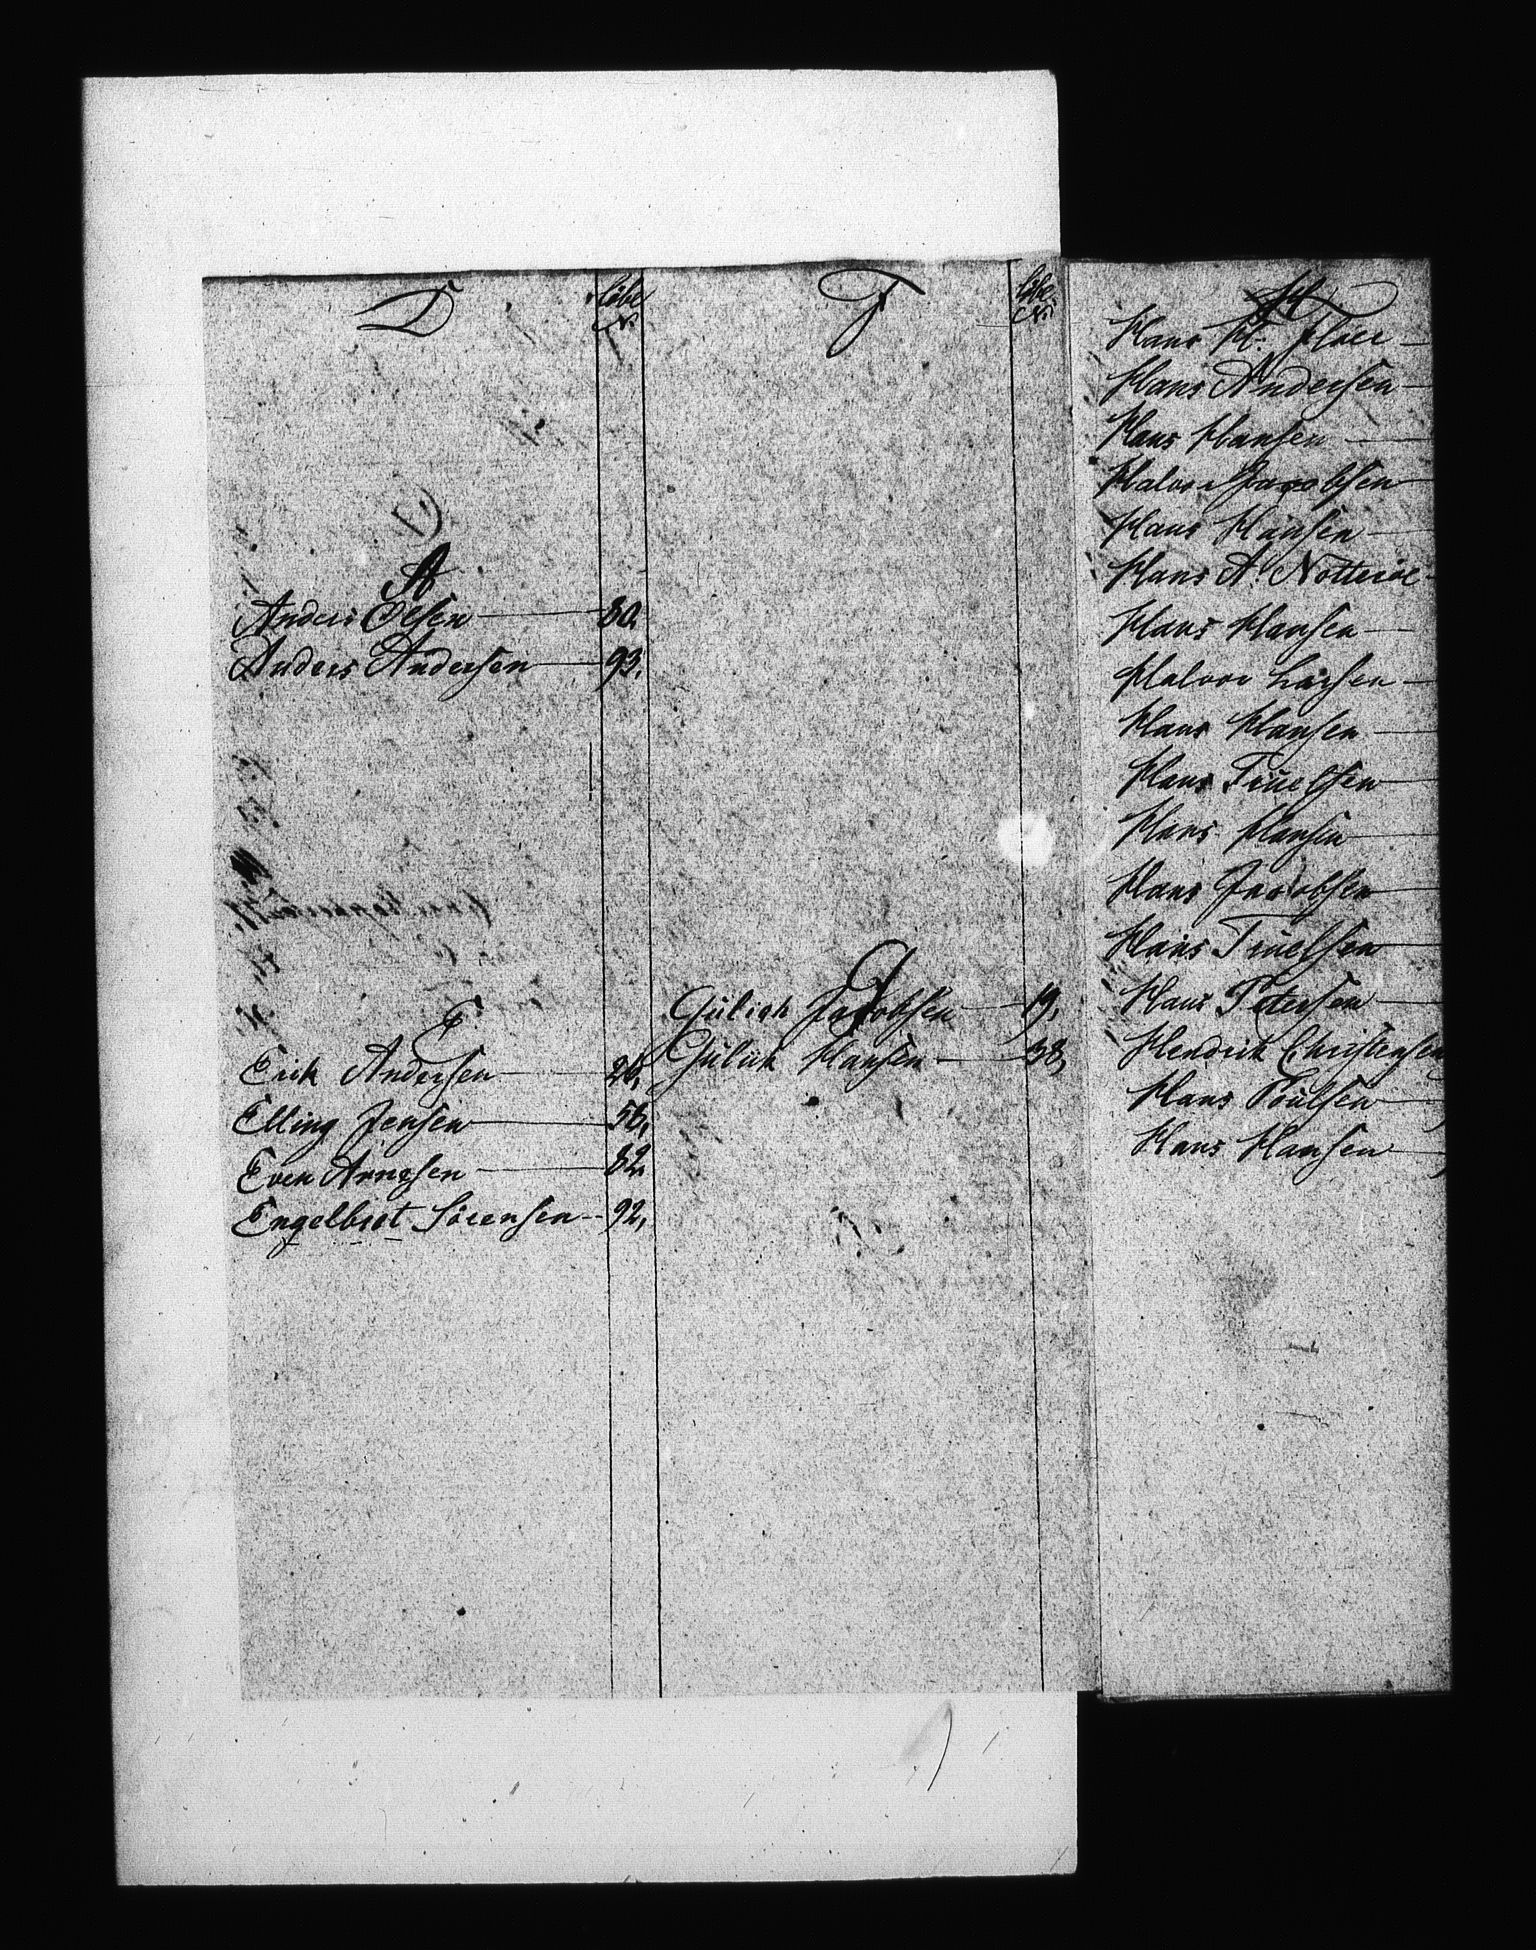 D
Løbe
No
A
Anders Olsen 80.
Anders Andersen 93.
E
Erik Andersen 26,
Elling Jensen 56,
Even Arnesen 82.
Engelbret Sörensen 92,
F
Løbe
No
G
Gulich Jacobsen 19,
Gulich Hansen 38,
H
Hans H: Floer
Hans Andersen
Hans Hansen
Halvor Jacobsen
Hans Hansen
Hans A. Nötteröe
Hans Hansen
Halvor Larsen
Hans Hansen
Hans Truelsen
Hans Hansen
Hans Jacobsen
Hans Truelsen
Hans Petersen
Hendrik Christensen
Hans Poulsen
Hans Hansen